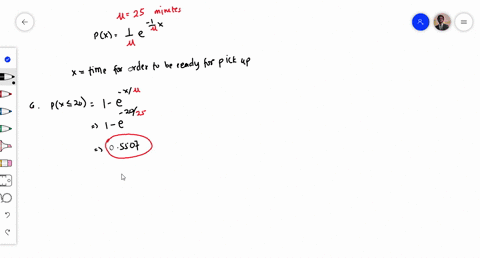 μ = 25 minutes
P(x) = 1/μ e^(-1/μ x)
x = time for order to be ready for pick up
G. P(x ≤ 20) = 1 - e^(-x/μ)
=> 1 - e^(-20/25)
=> 0.5507